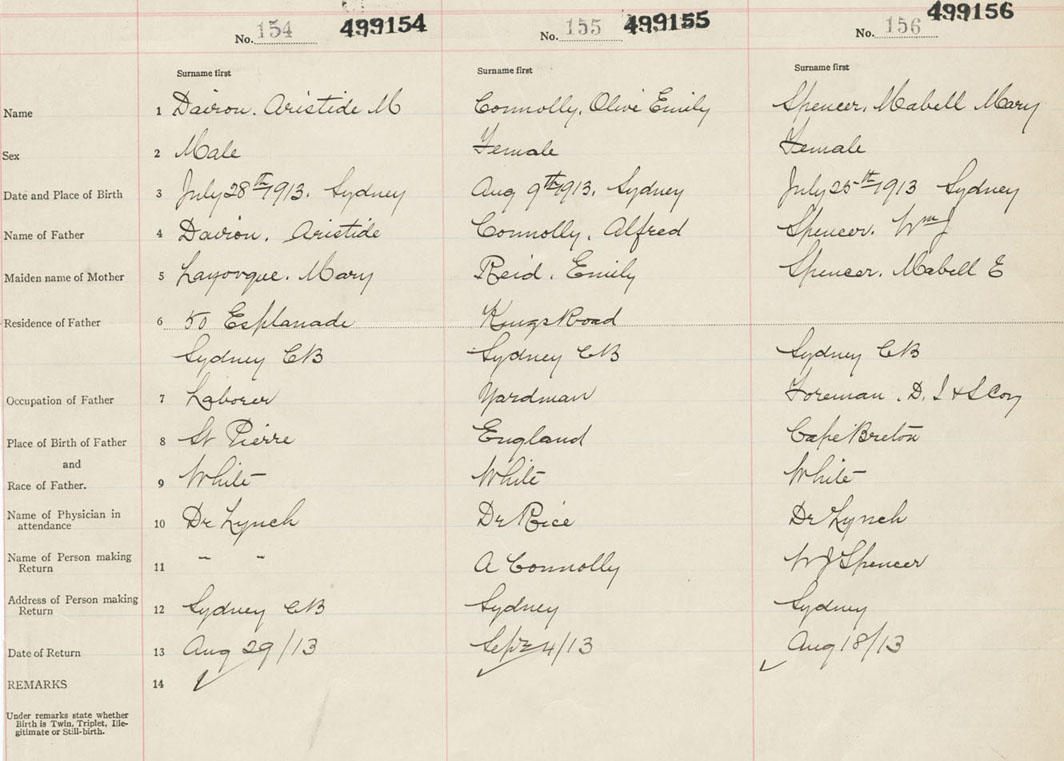 No. 154 499154 No. 155 499155 No. 156 499156
Surname first Surname first Surname first
Name 1 Dairon. Aristide M Connolly, Olive Emily Spencer, Mabell Mary
Sex 2 Male Female Female
Date and Place of Birth 3 July 28th 1913. Sydney Aug 9th 1913. Sydney July 25th 1913 Sydney
Name of Father 4 Dairon. Aristide Connolly, Alfred Spencer. Wm J
Maiden name of Mother 5 Mary Reid. Emily Spencer. Mabell E
Residence of Father 6 50 Esplanade Kings Road
Sydney CB Sydney CB Sydney CB
Occupation of Father 7 Laborer Yardman Foreman. D. I & S Coy
Place of Birth of Father 8 St Pierre England Cape Breton
and
Race of Father. 9 White White White
Name of Physician in
attendance 10 Dr Lynch Dr Rice Dr Lynch
Name of Person making
Return 11 " " A Connolly W J Spencer
Address of Person making
Return 12 Sydney CB Sydney Sydney
Date of Return 13 Aug 29/13 Sept 4/13 Aug 18/13
REMARKS 14
Under remarks state whether
Birth is Twin, Triplet, Ille-
gitimate or Still-birth.